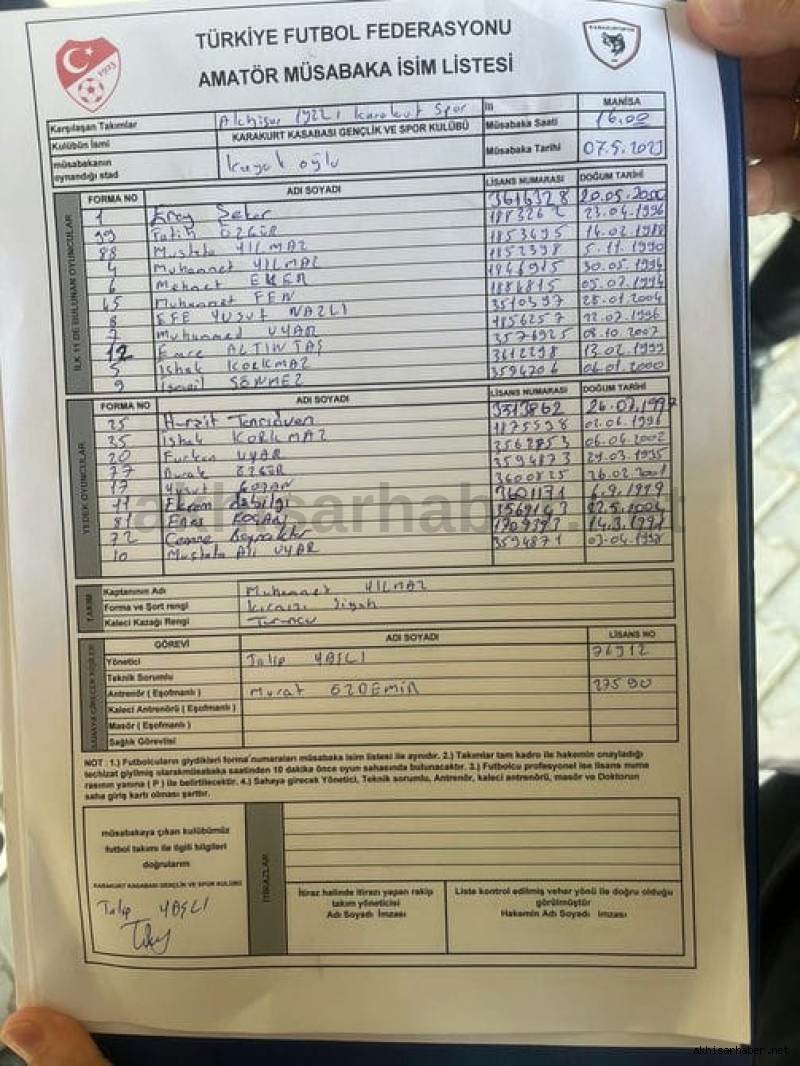 TÜRKİYE FUTBOL FEDERASYONU
AMATÖR MÜSABAKA İSİM LİSTESİ
1923
KARAKURTSPOR
Karşılaşan Takımlar Akhisar 1922 / Karakurt Spor İli MANİSA
Kulübün İsmi KARAKURT KASABASI GENÇLİK VE SPOR KULÜBÜ Müsabaka Saati 16.00
müsabakanın oynandığı stad Müsabaka Tarihi 07.5.2023
İLK 11'DE BULUNAN OYUNCULAR
FORMA NO ADI SOYADI LİSANS NUMARASI DOĞUM TARİHİ
1 Eray Şeker 3616328 20.05.2000
99 Fatih ÖZGÜR 1883262 23.04.1996
88 Mustafa YILMAZ 1853495 14.02.1988
4 Muhammet YILMAZ 1852398 5.11.1990
6 Mehmet EKER 1946915 30.05.1994
45 Muhammet FEN 1884815 05.02.1994
8 EFE YUSUF NAZLI 3510397 28.01.2004
7 Muhammed UYAR 1856257 22.07.1996
12 Emre ALTINTAŞ 3576925 08.10.2007
5 İshak KORKMAZ 3612298 13.02.1999
9 İsmail SÖNMEZ 3594206 06.01.2000
YEDEK OYUNCULAR
FORMA NO ADI SOYADI LİSANS NUMARASI DOĞUM TARİHİ
25 Tanrıöven 3313862 26.07.1997
35 İshak KORKMAZ 1875598 02.06.1996
20 Furkan UYAR 3562853 06.04.2002
77 Burak ÖZGÜR 3594873 29.03.1995
17 Yusuf 3600825 26.02.2001
11 Ekrem 3601171 6.9.1999
81 Enes KOÇAN 3569143 22.5.2004
72 Cemre Bayraktar 1709393 14.3.1991
10 Mustafa Ali UYAR 3594871 03.04.1998
akhisarhaber.net
TAKIM
Kaptanının Adı Muhammet YILMAZ
Forma ve Şort rengi Kırmızı Siyah
Kaleci Kazağı Rengi Turuncu
SAHAYA GİRECEK KİŞİLER
GÖREVİ ADI SOYADI LİSANS NO
Yönetici Talip YAŞLI 76912
Teknik Sorumlu
Antrenör ( Eşofmanlı ) Murat ÖZDEMİR 27590
Kaleci Antrenörü ( Eşofmanlı )
Masör ( Eşofmanlı )
Sağlık Görevlisi
NOT : 1.) Futbolcuların giydikleri forma numaraları müsabaka isim listesi ile aynıdır. 2.) Takımlar tam kadro ile hakemin onayladığı
techizat giyilmiş olarakmüsabaka saatinden 10 dakika önce oyun sahasında bulunacaktır. 3.) Futbolcu profesyonel ise lisans numa
rasının yanına ( P ) ile belirtilecektir. 4.) Sahaya girecek Yönetici, Teknik sorumlu, Antrenör, kaleci antrenörü, masör ve Doktorun
saha giriş kartı olması şarttır.
müsabakaya çıkan kulübümüz
futbol takımı ile ilgili bilgileri
doğrularım
KARAKURT KASABASI GENÇLİK VE SPOR KULÜBÜ
Talip YAŞLI
İTİRAZLAR
İtiraz halinde itirazı yapan rakip
takım yöneticisi
Adı Soyadı İmzası
Liste kontrol edilmiş veher yönü ile doğru olduğu
görülmüştür
Hakemin Adı Soyadı İmzası
akhisarhaber.net